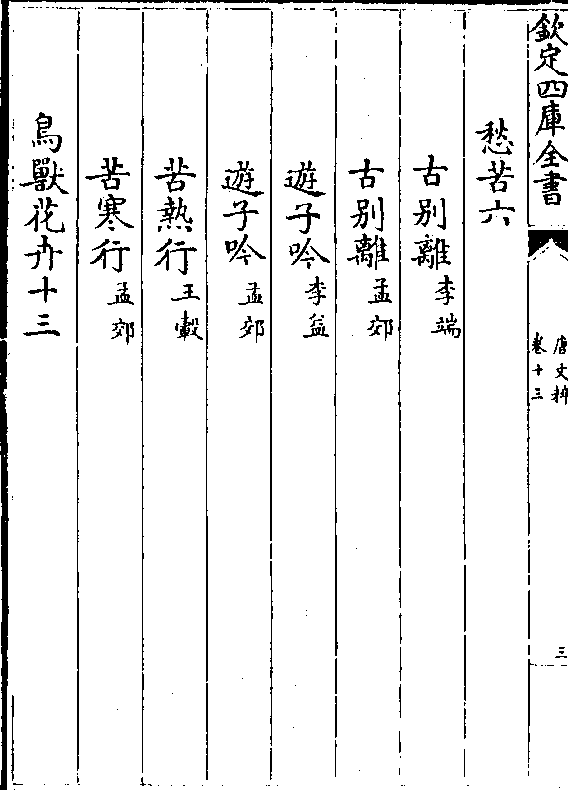 欽定四庫全書
唐文粹
卷十三
三
愁苦六
古别離李端
古别離孟郊
遊子吟李益
遊子吟孟郊
苦熱行王轂
苦寒行孟郊
鳥獸花卉十三